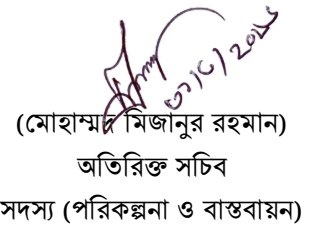 (মোহাম্মদ মিজানুর রহমান)
অতিরিক্ত সচিব
সদস্য (পরিকল্পনা ও বাস্তবায়ন)